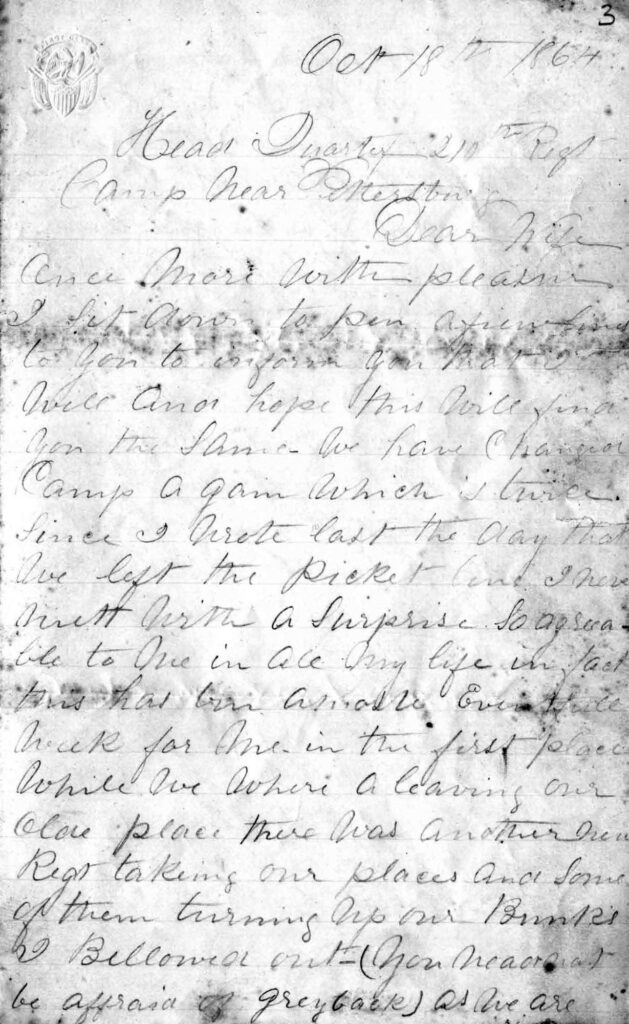 3
Oct 18th 1864
Head Quarters 210th Regt
Camp Near Petersburg
Dear Wife
Once More with pleasure
I sit down to pen a few lines
to you to inform you that I am
Well And hope this Will find
you the Same - We have Changed
Camp again Which is twice
Since I Wrote last the day that
We left the Picket line I never
mett With a Surprise So agrea-
ble to Me in All My life in fact
this has bin a Eventfull
Week for Me - in the first place
While We Where a leaving our
Olde place there Was Another New
Regt taking our places And Some
of them turning Up our Bunks
I Bellowed out - (You nead not
be affraid of greyback) As We are